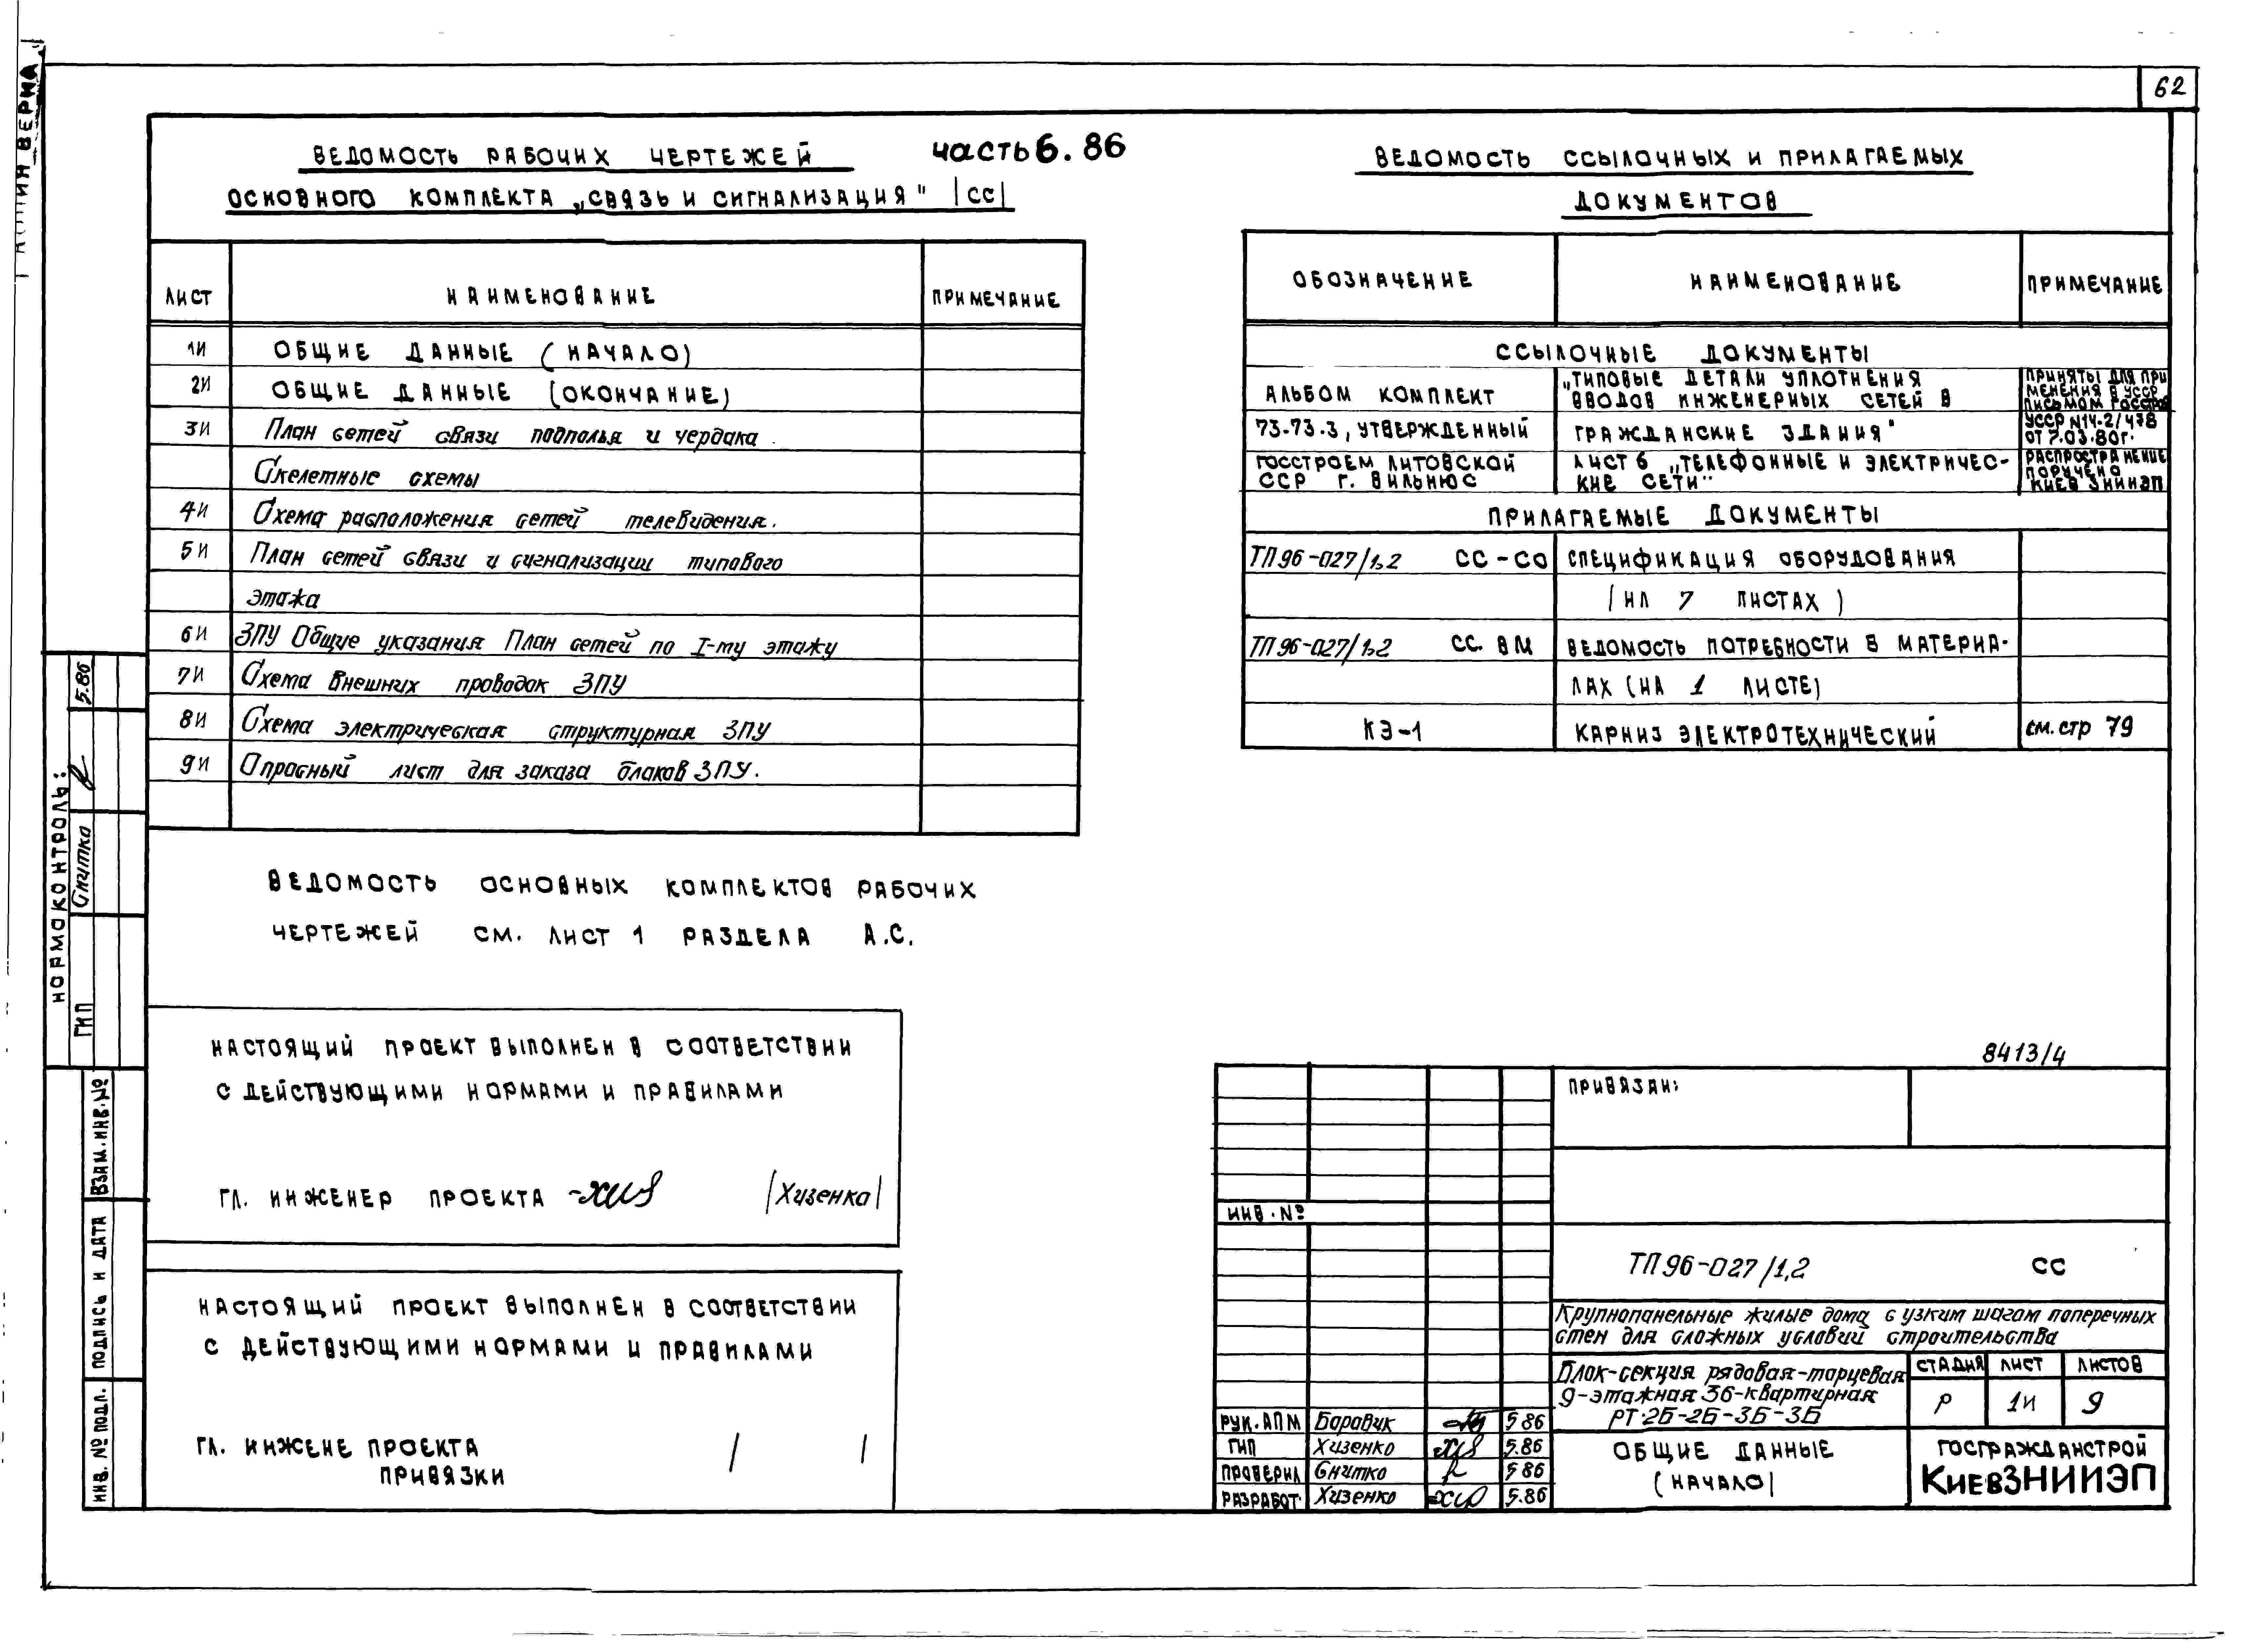 62
КОПИЯ ВЕРНА
ВЕДОМОСТЬ РАБОЧИХ ЧЕРТЕЖЕЙ
ОСНОВНОГО КОМПЛЕКТА „СВЯЗЬ И СИГНАЛИЗАЦИЯ" |СС|
часть 6.86
ЛИСТ НАИМЕНОВАНИЕ ПРИМЕЧАНИЕ
1И ОБЩИЕ ДАННЫЕ (НАЧАЛО)
2И ОБЩИЕ ДАННЫЕ (ОКОНЧАНИЕ)
3И План сетей связи подполья и чердака.
Скелетные схемы
4И Схема расположения сетей телевидения.
5И План сетей связи и сигнализации типового
этажа
6И ЗПУ Общие указания План сетей по I-му этажу
7И Схема внешних проводок ЗПУ
8И Схема электрическая структурная ЗПУ
9И Опросный лист для заказа блоков ЗПУ.
ВЕДОМОСТЬ ОСНОВНЫХ КОМПЛЕКТОВ РАБОЧИХ
ЧЕРТЕЖЕЙ СМ. ЛИСТ 1 РАЗДЕЛА А.С.
НАСТОЯЩИЙ ПРОЕКТ ВЫПОЛНЕН В СООТВЕТСТВИИ
С ДЕЙСТВУЮЩИМИ НОРМАМИ И ПРАВИЛАМИ
ГЛ. ИНЖЕНЕР ПРОЕКТА |Хизенко|
НАСТОЯЩИЙ ПРОЕКТ ВЫПОЛНЕН В СООТВЕТСТВИИ
С ДЕЙСТВУЮЩИМИ НОРМАМИ И ПРАВИЛАМИ
ГЛ. ИНЖЕНЕ ПРОЕКТА
ПРИВЯЗКИ
ВЕДОМОСТЬ ССЫЛОЧНЫХ И ПРИЛАГАЕМЫХ
ДОКУМЕНТОВ
ОБОЗНАЧЕНИЕ НАИМЕНОВАНИЕ ПРИМЕЧАНИЕ
ССЫЛОЧНЫЕ ДОКУМЕНТЫ
АЛЬБОМ КОМПЛЕКТ
73-73.3, УТВЕРЖДЕННЫЙ
ГОССТРОЕМ ЛИТОВСКОЙ
ССР Г. ВИЛЬНЮС
„ТИПОВЫЕ ДЕТАЛИ УПЛОТНЕНИЯ
ВВОДОВ ИНЖЕНЕРНЫХ СЕТЕЙ В
ГРАЖДАНСКИЕ ЗДАНИЯ"
ЛИСТ 6 „ТЕЛЕФОННЫЕ И ЭЛЕКТРИЧЕС-
КИЕ СЕТИ"
ПРИНЯТЫ ДЛЯ ПРИ
МЕНЕНИЯ В УССР
ПИСЬМОМ ГОССТРОЯ
УССР N14-2/478
ОТ 7.03.80г.
РАСПРОСТРАНЕНИЕ
ПОРУЧЕНО
КИЕВЗНИИЭП
ПРИЛАГАЕМЫЕ ДОКУМЕНТЫ
ТП 96-027/1,2 СС-СО СПЕЦИФИКАЦИЯ ОБОРУДОВАНИЯ
(НА 7 ЛИСТАХ)
ТП 96-027/1,2 СС. ВМ ВЕДОМОСТЬ ПОТРЕБНОСТИ В МАТЕРИА-
ЛАХ (НА 1 ЛИСТЕ)
КЭ-1 КАРНИЗ ЭЛЕКТРОТЕХНИЧЕСКИЙ см. стр 79
8413/4
ПРИВЯЗАН:
ИНВ. №
ТП 96-027/1,2 СС
Крупнопанельные жилые дома с узким шагом поперечных
стен для сложных условий строительства
Блок-секция рядовая-торцевая
9-этажная 36-квартирная
РТ·2Б-2Б-3Б-3Б
СТАДИЯ ЛИСТ ЛИСТОВ
Р 1И 9
ОБЩИЕ ДАННЫЕ
(НАЧАЛО)
ГОСГРАЖДАНСТРОЙ
КиевЗНИИЭП
РУК. АПМ Боровик 5.86
ГИП Хизенко 5.86
ПРОВЕРИЛ Снитко 5.86
РАЗРАБОТ. Хизенко 5.86
НОРМОКОНТРОЛЬ:
ГИП Снитко 5.86
ВЗАМ. ИНВ. №
ПОДПИСЬ И ДАТА
ИНВ. № ПОДЛ.